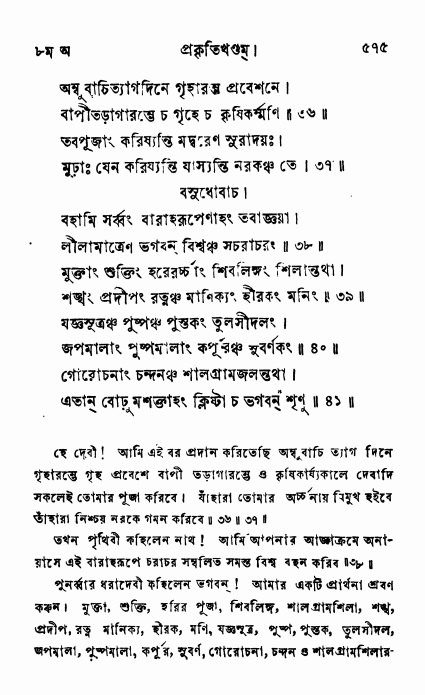 ৮ম অ প্রকৃতিখণ্ডম্। ৫৭৫
অম্বুবাচিত্যাগদিনে গৃহারম্ভ প্রবেশনে।
বাপীতড়াগারম্ভে চ গৃহে চ কৃষিকর্ম্মণি॥ ৩৬॥
তবপূজাং করিষ্যন্তি মদ্বরেণ সুরাদয়ঃ।
মূঢ়াঃ যেন করিষ্যন্তি যাস্যন্তি নরকঞ্চ তে। ৩৭॥
বসুধোবাচ।
বহামি সর্ব্বং বারাহরূপেণাহং তবাজ্ঞয়া।
লীলামাত্রেণ ভগবন্ বিশ্বঞ্চ সচরাচরং॥ ৩৮॥
মুক্তাং শুক্তিং হরেরর্চ্চাং শিবলিঙ্গং শিলান্তথা।
শঙ্খং প্রদীপং রত্নঞ্চ মানিক্যং হীরকং মনিং॥ ৩৯॥
যজ্ঞসূত্রঞ্চ পুষ্পঞ্চ পুস্তকং তুলসীদলং।
জপমালাং পুষ্পমালাং কর্পূরঞ্চ সুবর্ণকং॥ ৪০॥
গোরোচনাং চন্দনঞ্চ শালগ্রামজলন্তথা।
এতান্ বোঢ়ুমশক্তাহং ক্লিষ্টা চ ভগবন্ শৃণু॥ ৪১॥
হে দেবী! আমি এই বর প্রদান করিতেছি অম্বুবাচি ত্যাগ দিনে
গৃহারম্ভে গৃহ প্রবেশে বাপী তড়াগারম্ভে ও কৃষিকার্য্যকালে দেবাদি
সকলেই তোমার পূজা করিবে। যাঁহারা তোমার অর্চ্চনায় বিমুখ হইবে
তাঁহারা নিশ্চয় নরকে গমন করিবে॥ ৩৬॥ ৩৭॥
তখন পৃথিবী কহিলেন নাথ! আমি আপনার আজ্ঞাক্রমে অনা-
য়াসে এই বারাহরূপে চরাচর সম্বলিত সমস্ত বিশ্ব বহন করিব॥৩৮॥
পুনর্ব্বার ধরাদেবী কহিলেন ভগবন্! আমার একটি প্রার্থনা শ্রবণ
করুন। মুক্তা, শুক্তি, হরির পূজা, শিবলিঙ্গ, শালগ্রামশিলা, শঙ্খ,
প্রদীপ, রত্ন মানিক্য, হীরক, মণি, যজ্ঞসূত্র, পুষ্প, পুস্তক, তুলসীদল,
জপমালা, পুষ্পমালা, কর্পূর, সুবর্ণ, গোরোচনা, চন্দন ও শালগ্রামশিলার-